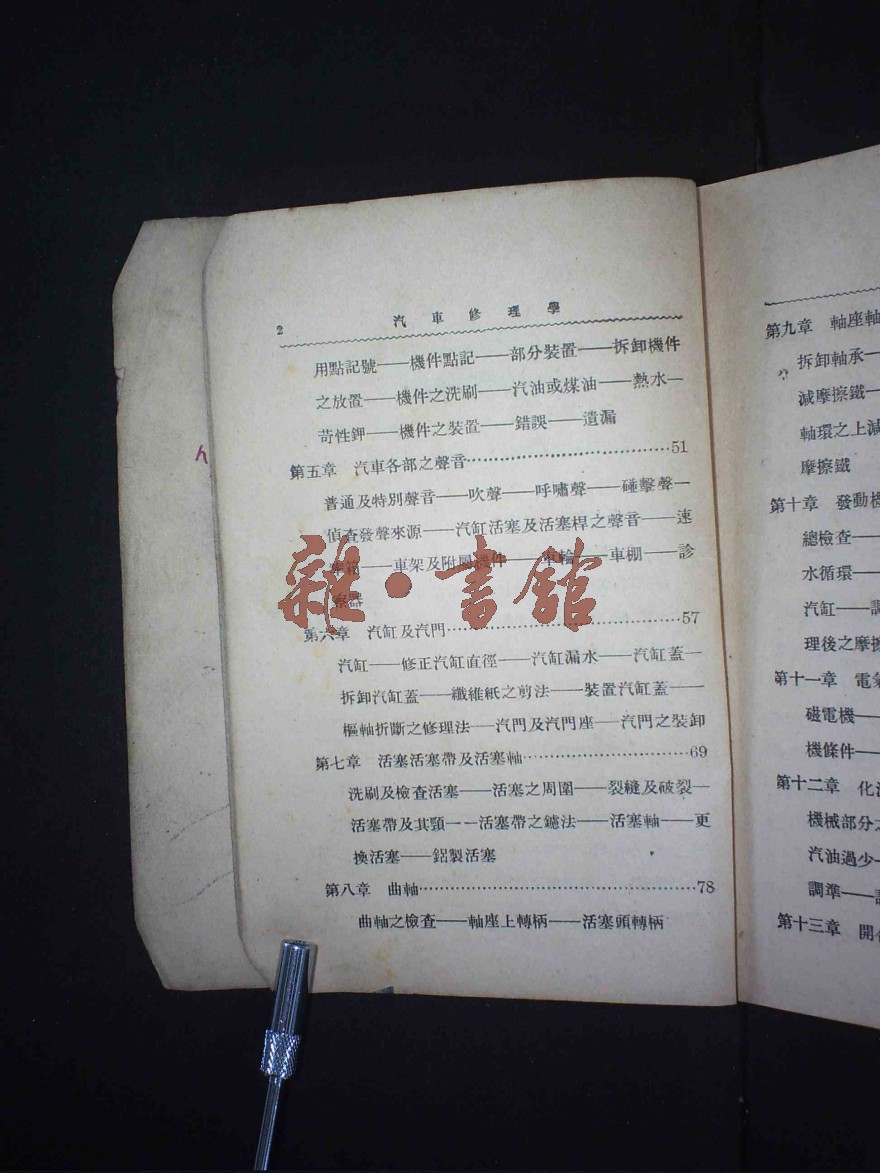 2
汽車修理學
用點記號——機件點記——部分裝置——拆卸機件
之放置——機件之洗刷——汽油或煤油——熱水—
苛性鉀——機件之裝置——錯誤——遺漏
第五章 汽車各部之聲音……51
普通及特別聲音——吹聲——呼嘯聲——碰擊聲—
偵查發聲來源——汽缸活塞及活塞桿之聲音——速
——車架及附屬機件——車輪——車棚——診
器
第六章 汽缸及汽門……57
汽缸——修正汽缸直徑——汽缸漏水——汽缸蓋—
拆卸汽缸蓋——纖維紙之剪法——裝置汽缸蓋——
樞軸折斷之修理法——汽門及汽門座——汽門之裝卸
第七章 活塞活塞帶及活塞軸……69
洗刷及檢查活塞——活塞之周圍——裂縫及破裂—
活塞帶及其類——活塞帶之鑢法——活塞軸——更
換活塞——鋁製活塞
第八章 曲軸……78
曲軸之檢查——軸座上轉柄——活塞頭轉柄
雜·書館
第九章 軸座軸
拆卸軸承—
減摩擦鐵—
軸環之上減
摩擦鐵
第十章 發動機
總檢查——
水循環——
汽缸——調
理後之摩擦
第十一章 電氣
磁電機——
機條件——
第十二章 化
機械部分之
汽油過少—
調準——
第十三章 開